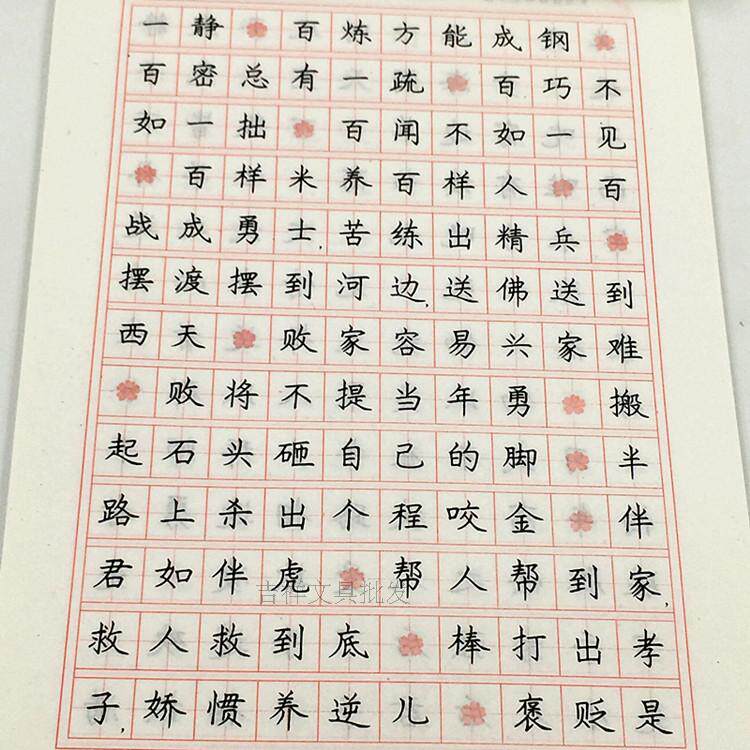 一静百炼方能成钢
百密总有一疏百巧不
如一拙百闻不如一见
百样米养百样人百
战成勇士,苦练出精兵
摆渡摆到河边,送佛送到
西天败家容易兴家难
败将不提当年勇搬
起石头砸自己的脚半
路上杀出个程咬金伴
君如伴虎帮人帮到家,
吉祥文具批发
救人救到底棒打出孝
子,娇惯养逆儿褒贬是